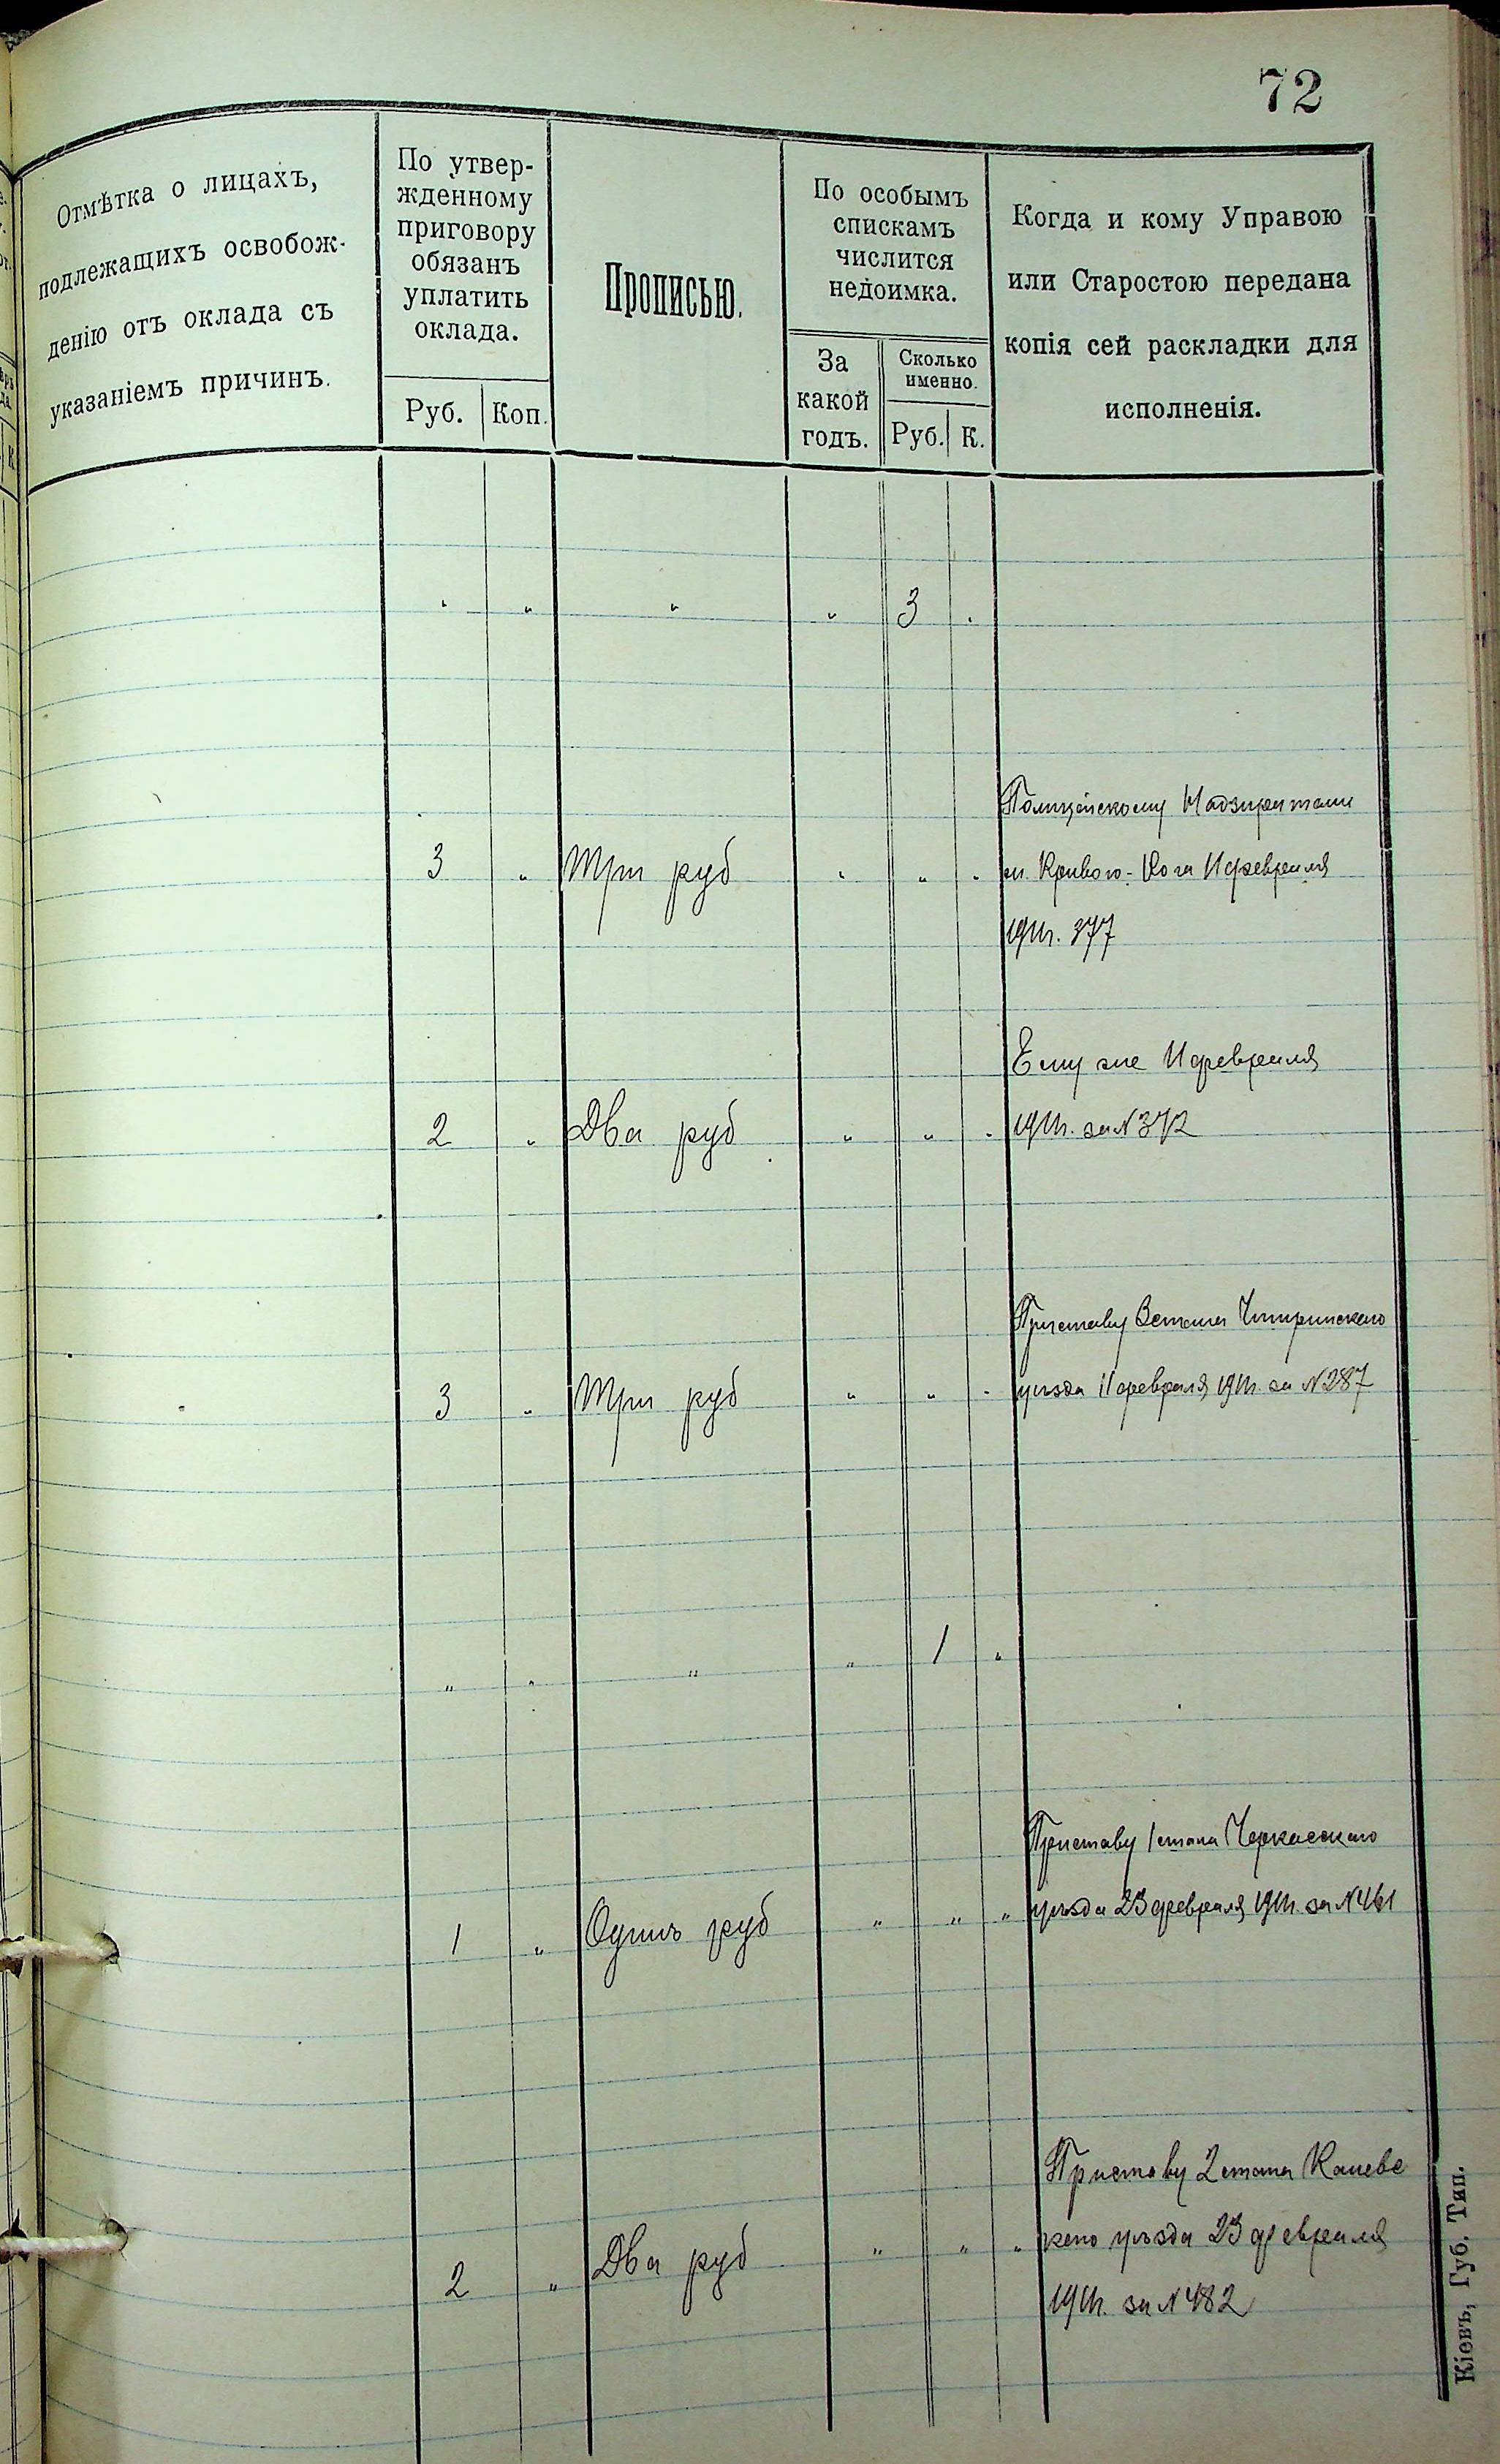 72
Отмѣтка о лицахъ,
подлежащихъ освобож-
денію отъ оклада съ
указаніемъ причинъ.
По утвер-
жденному
приговору
обязанъ
уплатить
оклада.
Руб. Коп.
Прописью.
По особымъ
спискамъ
числится
недоимка.
За
какой
годъ.
Сколько
именно.
Руб. К.
Когда и кому Управою
или Старостою передана
копія сей раскладки для
исполненія.
" " " " 3 "
Полицейскому Надзирателю
3 " Три руб " " " м. Кривого-Рога 11 февраля
1911г. 377
Ему же 11 февраля
2 " Два руб " " " 1911г. за N 372
Приставу стана Чигиринскаго
3 " Три руб " " " уѣзда 11 февраля 1911г. за N 287
" " " " 1 "
Приставу 1 стана Черкасскаго
1 " Одинъ руб " " " уѣзда 23 февраля 1911г. за N 461
Приставу 2 станаКаневс
2 " Два руб " " " каго уѣзда 23 февраля
1911г. за N 482
Кіевъ, Губ. Тип.